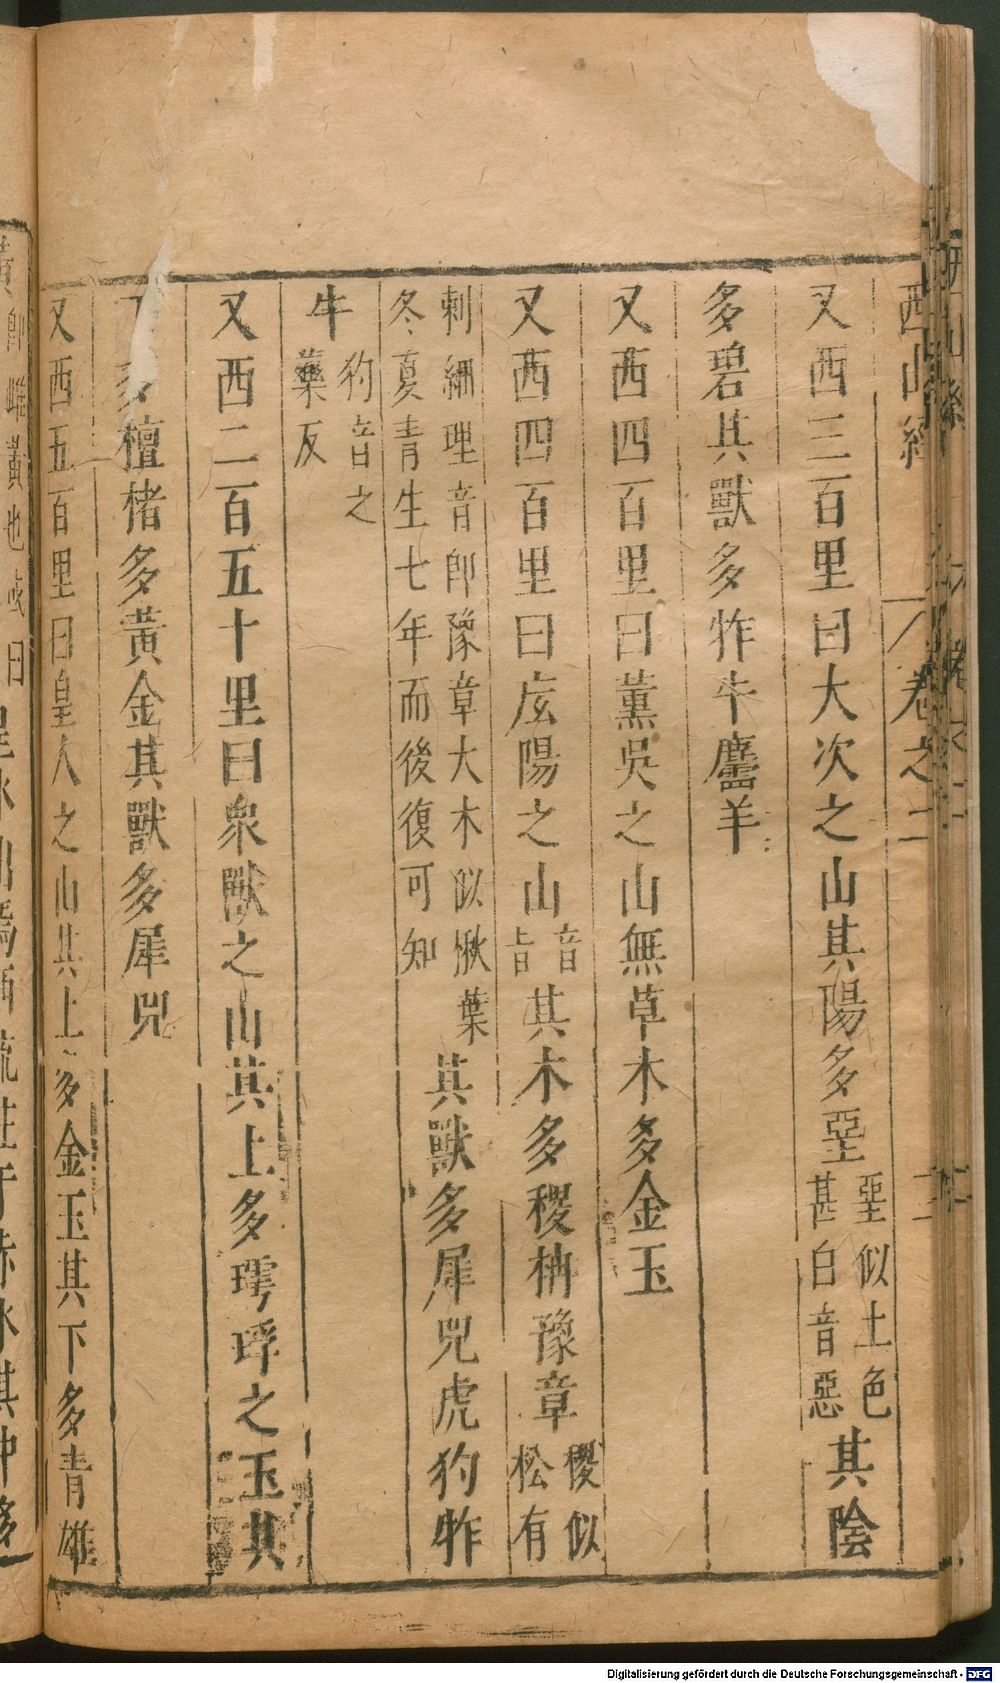 西山經 卷之二 二
又西三百里曰大次之山其陽多堊堊似土色甚白音惡其陰
多碧其獸多㸲牛麢羊
又西四百里曰薰吳之山無草木多金玉
又西四百里曰厎陽之山音旨其木多稷枏豫章稷似松有
刺細理音卽豫章大木似楸葉冬夏青生七年而後復可知其獸多犀兕虎犳㸲
牛犳音之藥反
又西二百五十里曰衆獸之山其上多㻬琈之玉其
下多檀楮多黃金其獸多犀兕
又西五百里曰皇人之山其上多金玉其下多青雄
黃卽雌黃也或曰皇水出焉西流注于赤水其中多
Digitalisierung gefördert durch die Deutsche Forschungsgemeinschaft - DFG